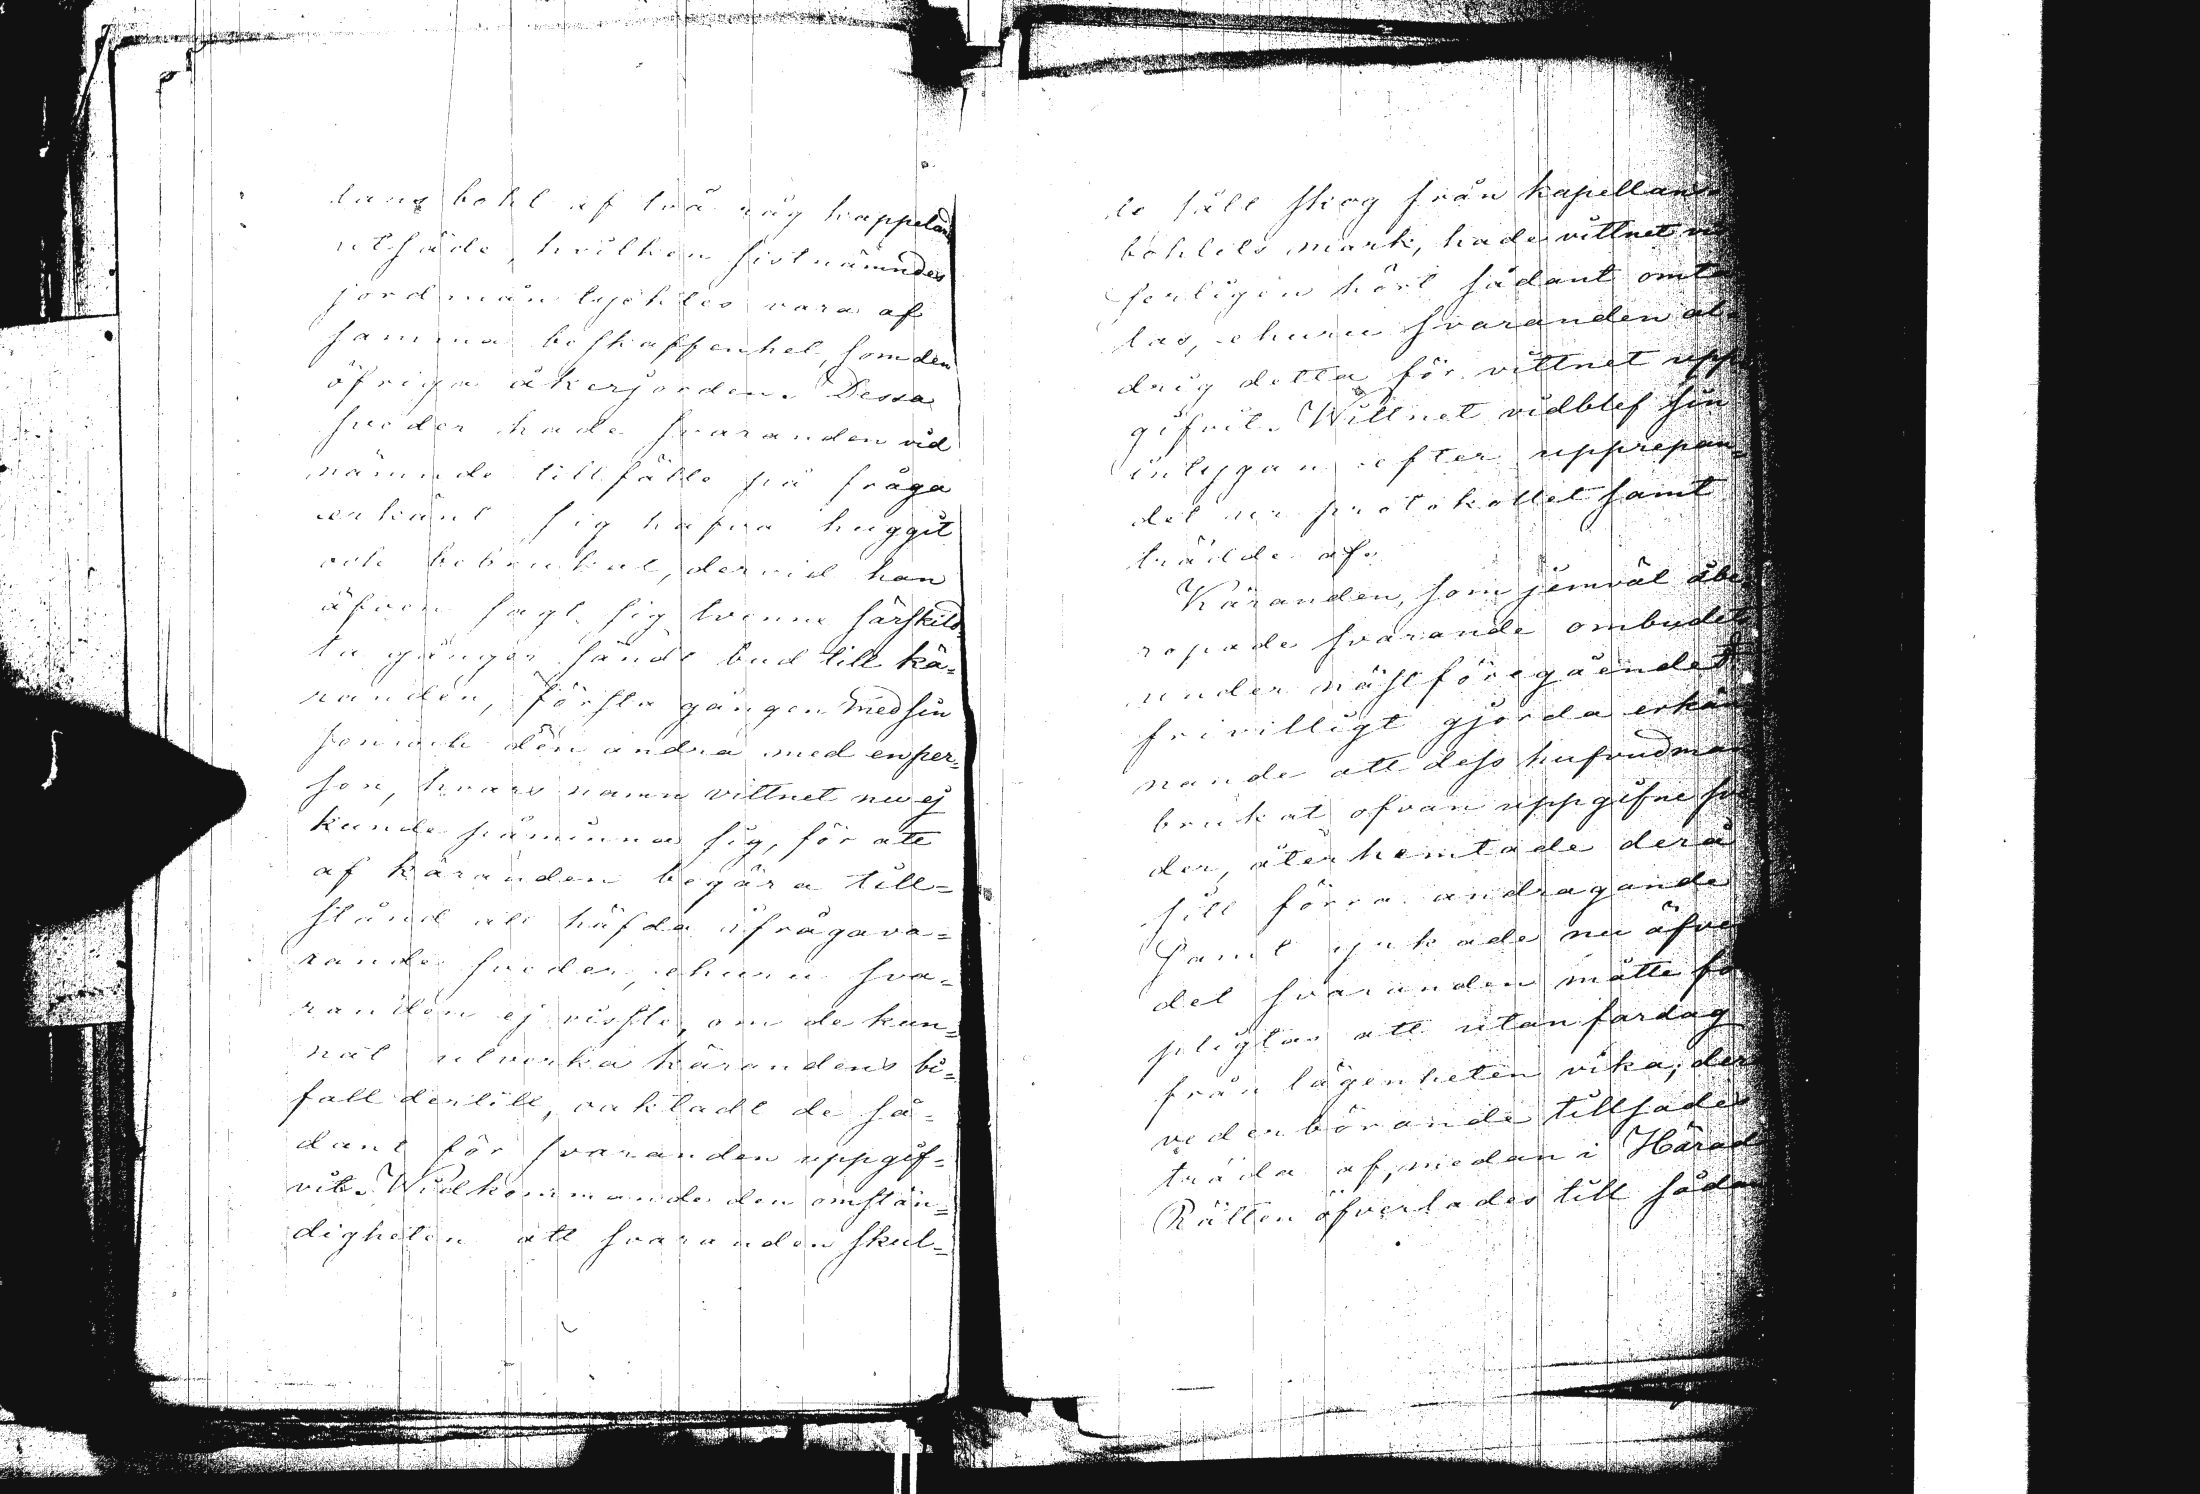 lans bohl af två råg kappeland
utsäde, hvilken sistnämndes
jordmån tycktes vara af
samma beskaffenhet, som den
öfriga åkerjorden. Dessa
sveder hade svaranden vid
nämnde tillfälle på fråga
erkänt sig hafva huggit
och bebrukat, dervid han
äfven sagt sig tvenne särskild
ta gånger sändt bud till kä=
randen, första gången med sin
son och den andra med en per=
son, hvars namn vittnet nu ej
kunde påminna sig, för att
af käranden begära till=
stånd att häfda ifrågava=
rande sveder, ehuru sva=
randen ej visste, om de kun=
nat utverka kärandens bi=
fall dertill, oaktadt de så=
dant för svaranden uppgif=
vit. Widkommande den omstän=
digheten att svaranden skul=
le sålt skog från kapellans
bohlets mark, hade vittnet
serligen hört sådant omta
las, ehuru svaranden al=
drig detta för vittnet upp
gifvit. Wittnet vidblef sin
intygan efter upprepan=
det ur protokollet samt
trädde af.
Käranden, som jemväl åbe
ropade svarande ombudets
under nästföregåendet
frivilligt gjorda erkän
nande att dess hufvudman
brukat ofvan uppgifne sve
der, återhemtade derå
sitt förra andragande
samt yrkade nu äfven
det svaranden måtte för
pligtas att utan fardag
från lägenheten vika; der
vederbörande tillsades
träda af, medan i Härads
Rätten öfverlades till sådan